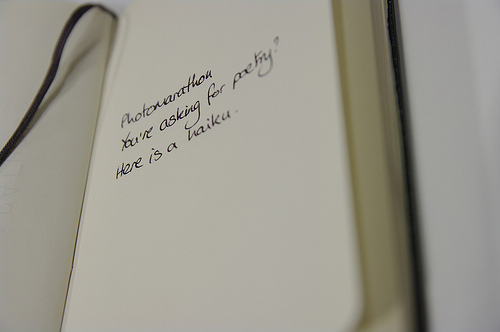 Photomarathon
You're asking for poetry?
Here is a haiku.